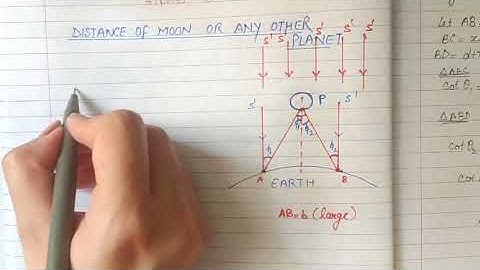 DISTANCE OF MOON OR ANY OTHER
PLANET
S' S' S' S' S'
P
S' S'
ϕ₁ ϕ₂
ϕ₁ ϕ₂
A B
EARTH
AB = b (large)
Let AB
BC = x
BD = d+
△ABC
cot θ₁
△ABD
cot θ₂